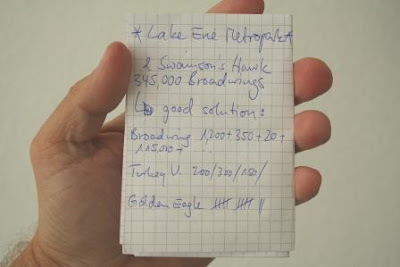 * Lake Erie Metropark *
2 Swainson's Hawk
345,000 Broadwings
↳ good solution:
Broadwing 1,200+350+20+
115,000+
Turkey V. 200/300/150/
Golden Eagle 𝍸 𝍸 ||